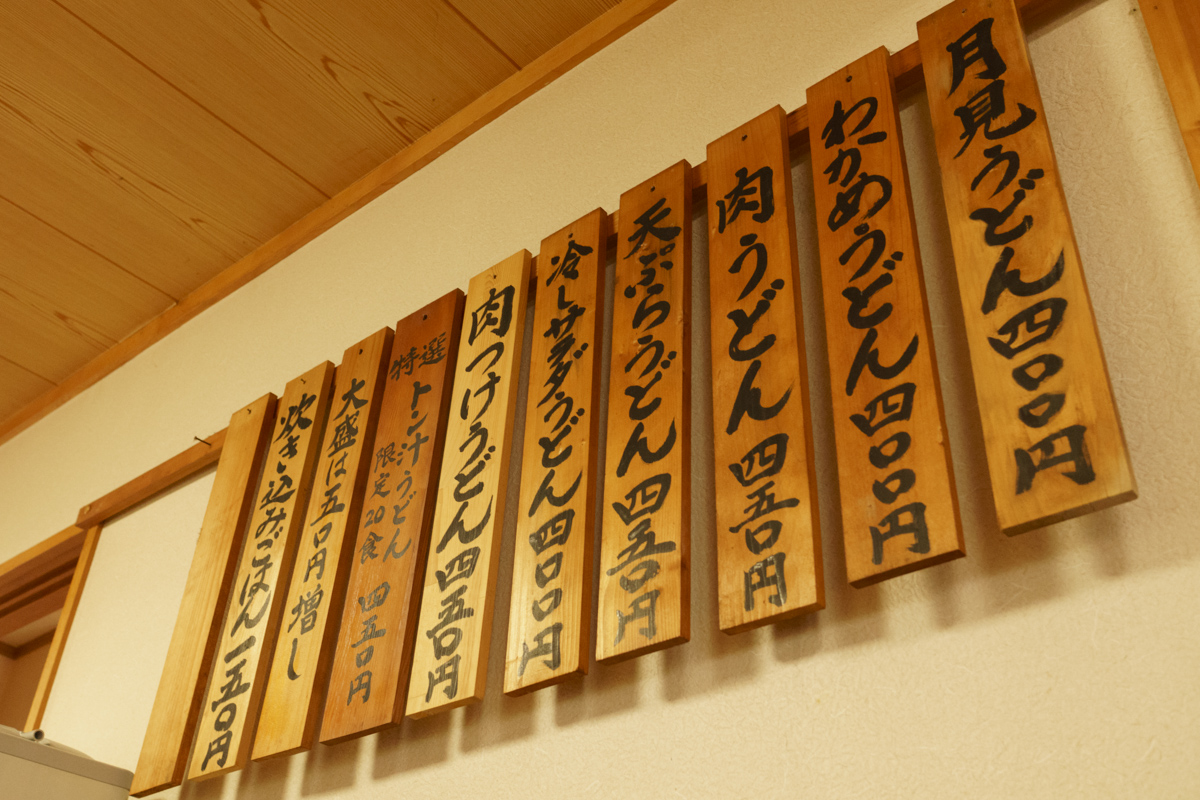 月見うどん四〇〇円
わかめうどん四〇〇円
肉うどん四五〇円
天ぷらうどん四五〇円
冷しサラダうどん四〇〇円
肉つけうどん四五〇円
特選
トン汁うどん
限定20食
四五〇円
大盛は五〇円増し
炊き込みごはん一五〇円